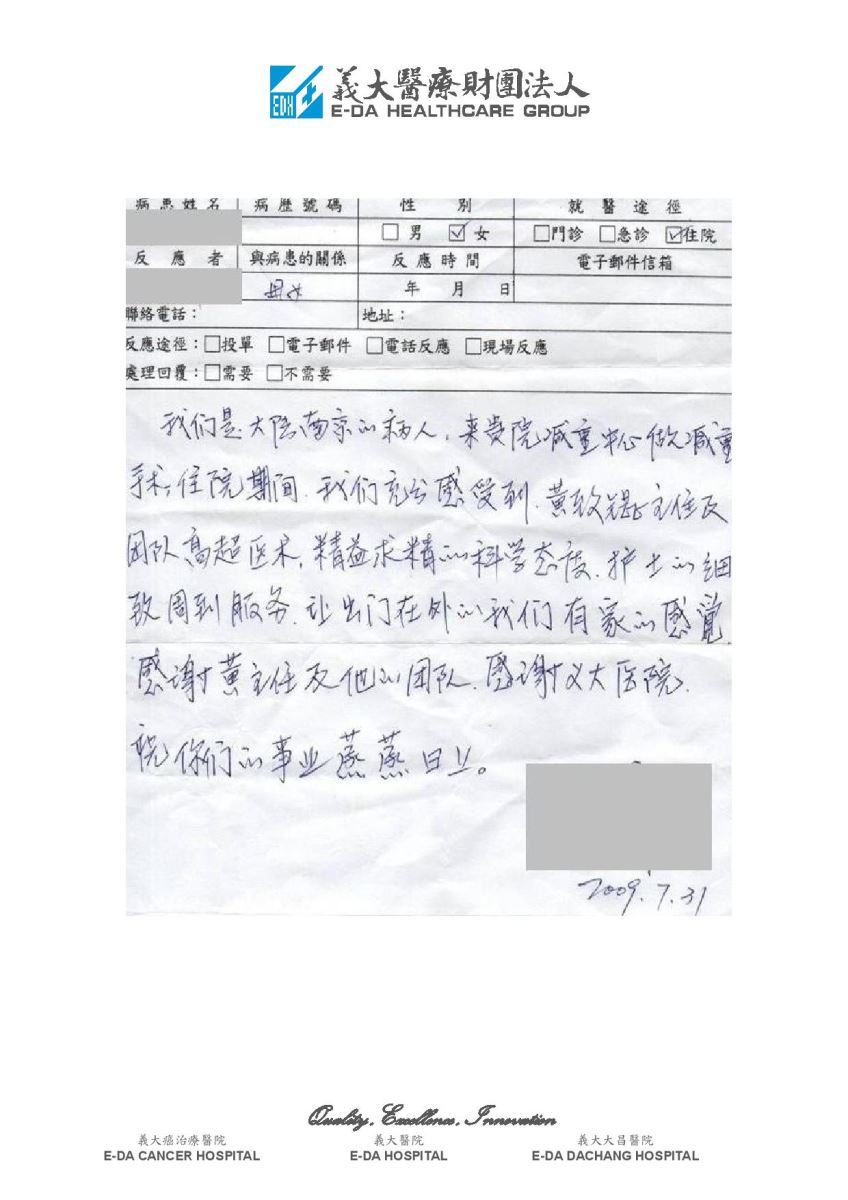 EDH
義大醫療財團法人
E-DA HEALTHCARE GROUP
病患姓名 病歷號碼 性 別 就醫途徑
□男 ☑女 □門診 □急診 ☑住院
反應者 與病患的關係 反應時間 電子郵件信箱
母女 年 月 日
聯絡電話： 地址：
反應途徑：□投單 □電子郵件 □電話反應 □現場反應
處理回覆：□需要 □不需要
我们是大陆南京的病人，来贵院减重中心做减重
手术，住院期间，我们充分感受到，黄致锟主任及
团队高超医术，精益求精的科学态度，护士的细
致周到服务，让出门在外的我们有家的感觉，
感谢黄主任及他的团队，感谢义大医院，
祝你们的事业蒸蒸日上。
2009.7.31
Quality, Excellence, Innovation
義大癌治療醫院 義大醫院 義大大昌醫院
E-DA CANCER HOSPITAL E-DA HOSPITAL E-DA DACHANG HOSPITAL